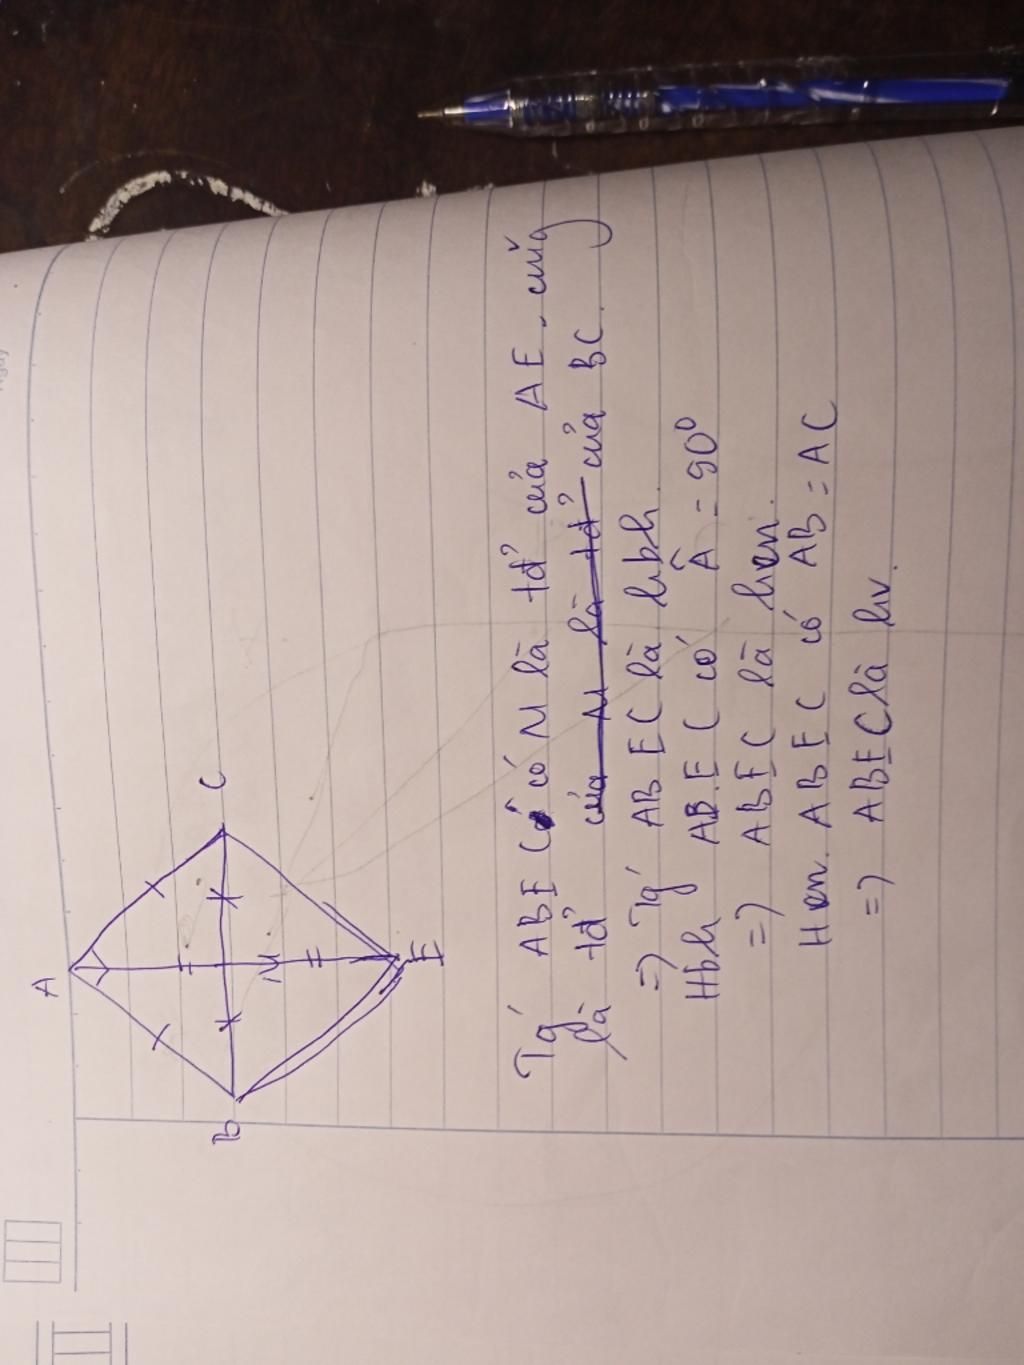 A
B
C
M
E
Tg' ABEC có M là tđ' của AE, cũng
là tđ' của M là tđ' của BC.
=> Tg' ABEC là hbh.
Hbh ABEC có Â = 90°
=> ABEC là hcn.
Hcn. ABEC có AB = AC
=> ABEC là hv.